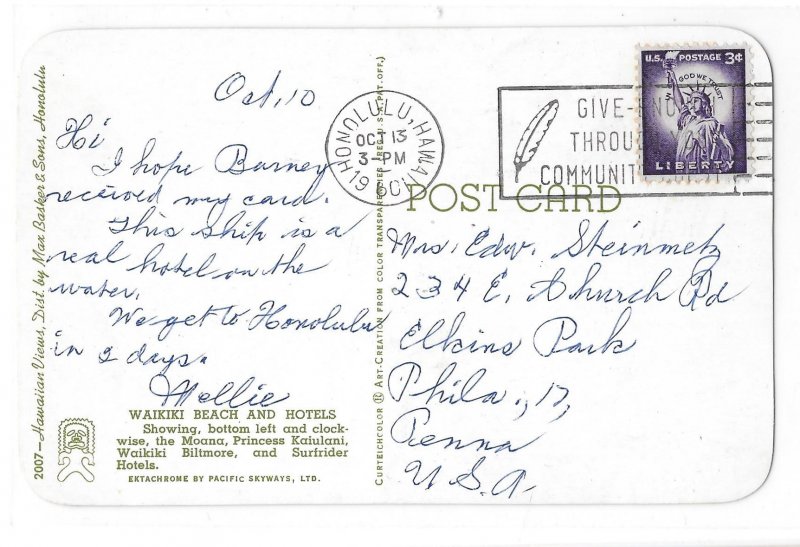 2007—Hawaiian Views, Dist. by Max Basker & Sons, Honolulu
Oct. 10
Hi
I hope Barney
received my card.
This ship is a
real hotel on the
water.
We get to Honolulu
in 2 days.
Mellie
WAIKIKI BEACH AND HOTELS
Showing, bottom left and clock-
wise, the Moana, Princess Kaiulani,
Waikiki Biltmore, and Surfrider
Hotels.
EKTACHROME BY PACIFIC SKYWAYS, LTD.
CURTEICHCOLOR ® ART-CREATION FROM COLOR TRANSPARENCIES (REG. U.S.A. PAT. OFF.)
HONOLULU, HAWAII
OCT 13
3-PM
1960
GIVE
THROU
COMMUNIT
U.S. POSTAGE 3¢
IN GOD WE TRUST
LIBERTY
POST CARD
Mrs. Edw. Steinmetz
234 E. Church Rd
Elkins Park
Phila., 17,
Penna
U.S.A.